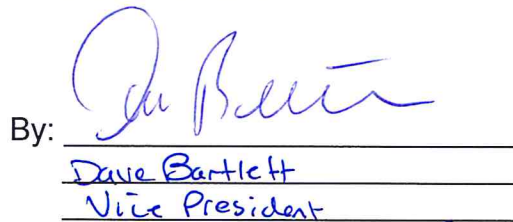 By:
Dave Bartlett
Vice President